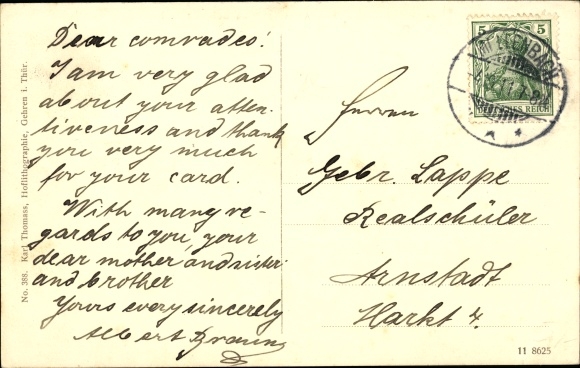 Dear comrades!
I am very glad
about your atten-
tiveness and thank
you very much
for your card.
With many re-
gards to you, your
dear mother, and sister
and brother
Yours every sincerely
Albert Braun
Herren
Gebr. Lappe
Realschüler
Arnstadt
Markt 4.
5 5
DEUTSCHES REICH
No. 388. Karl Thomass, Hoflithographie, Gehren i. Thür.
11 8625